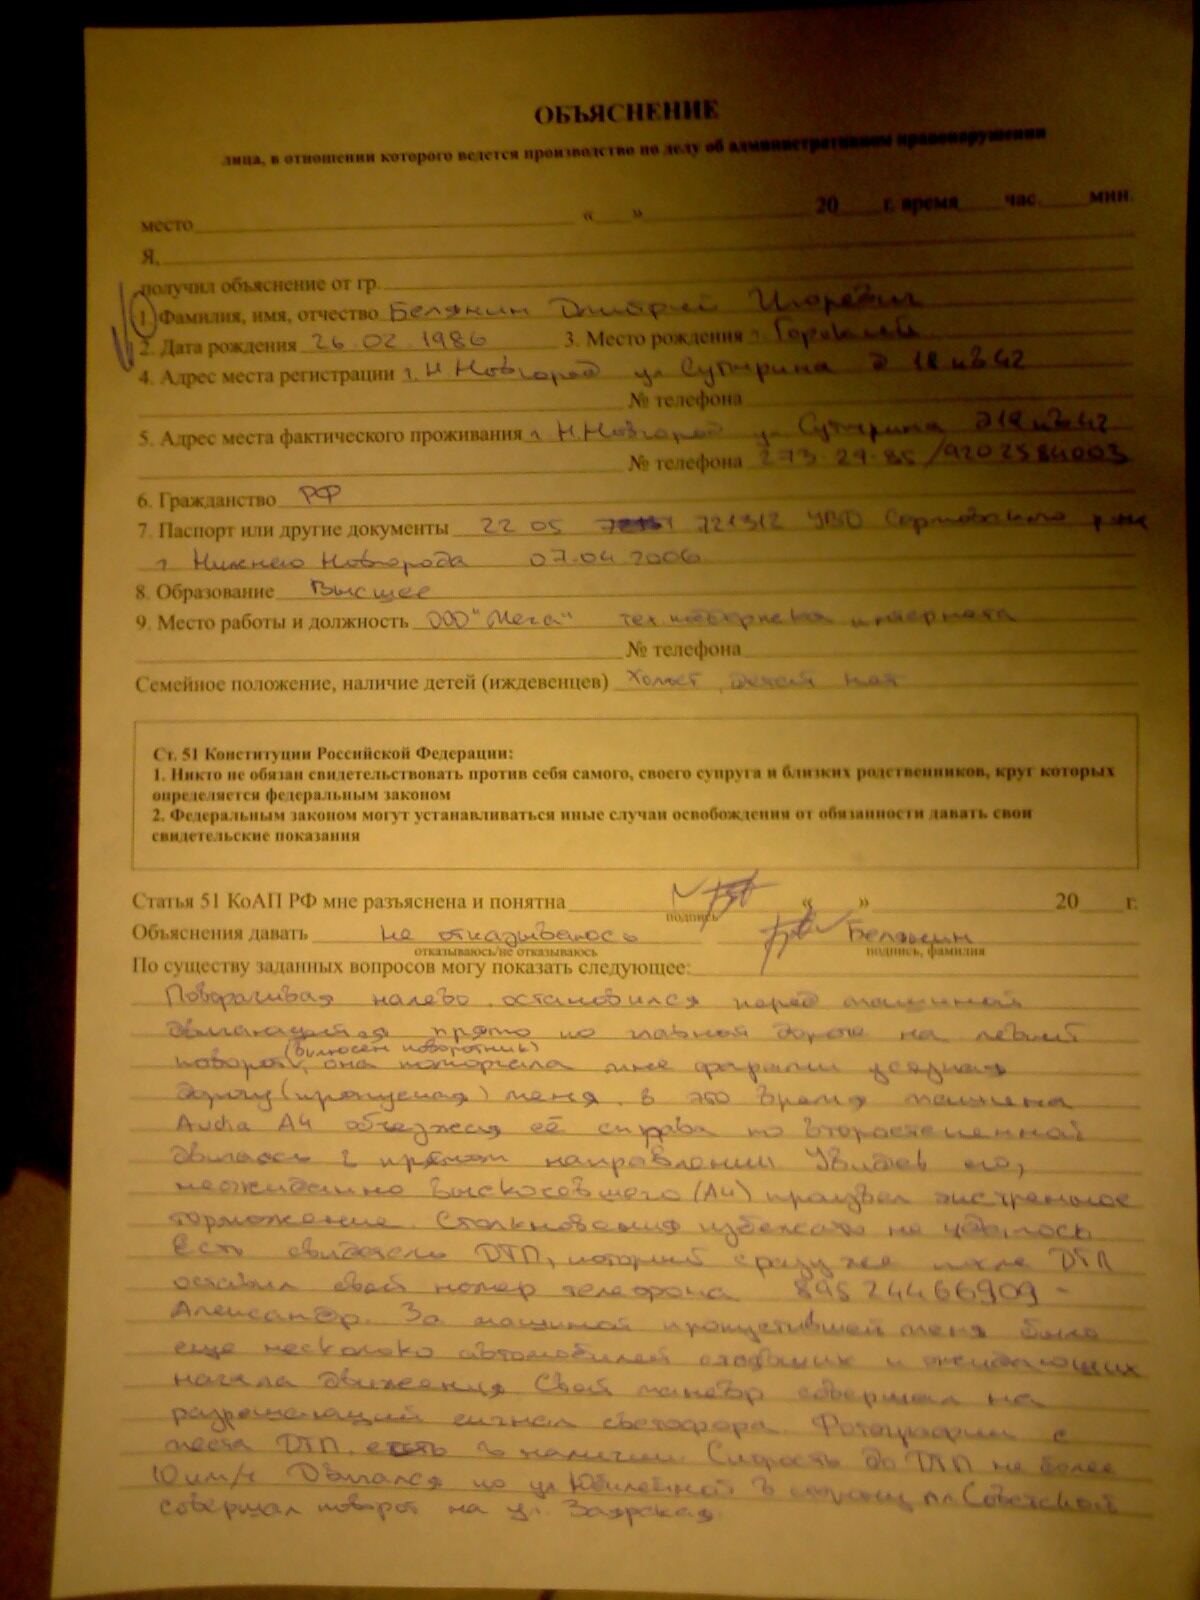 ОБЪЯСНЕНИЕ
лица, в отношении которого ведется производство по делу об административном правонарушении
место «    » 20    г. время    час.    мин.
Я,
получил объяснение от гр.
1. Фамилия, имя, отчество Белянин Дмитрий Игоревич
2. Дата рождения 26.02.1986 3. Место рождения г. Горький
4. Адрес места регистрации г. Н.Новгород ул д 18 кв 42
№ телефона
5. Адрес места фактического проживания г. Н.Новгород ул д 18 кв 42
№ телефона 273-29-85 / 9202584003
6. Гражданство РФ
7. Паспорт или другие документы 22 05 721312 УВД Сормовского р-на
г. Нижнего Новгорода 07.04.2006
8. Образование Высшее
9. Место работы и должность ООО "Мега" тех поддержка интернета
№ телефона
Семейное положение, наличие детей (иждевенцев) Холост, детей нет
Ст. 51 Конституции Российской Федерации:
1. Никто не обязан свидетельствовать против себя самого, своего супруга и близких родственников, круг которых
определяется федеральным законом
2. Федеральным законом могут устанавливаться иные случаи освобождения от обязанности давать свои
свидетельские показания
Статья 51 КоАП РФ мне разъяснена и понятна «    » 20    г.
подпись
Объяснения давать не отказываюсь Белянин
отказываюсь/не отказываюсь подпись, фамилия
По существу заданных вопросов могу показать следующее:
Поворачивая налево остановился перед машиной
двигающейся прямо по главной дороге на левый
(включен поворотник)
поворот, она поморгала мне фарами уступая
дорогу (пропуская) меня. в это время машина
Audia A4 объезжая её справа по второстепенной
двигаясь в прямом направлении. Увидев его,
неожиданно выскочевшего (А4) произвел экстренное
торможение. Столкновения избежать не удалось
Есть свидетель ДТП, который сразу же после ДТП
оставил свой номер телефона 89524466909 -
Александр. За машиной пропустившей меня было
еще несколько автомобилей стоявших и ожидающих
начала движения Свой маневр совершал на
разрешающий сигнал светофора. Фотографии с
места ДТП есть в наличии. Скорость до ДТП не более
10 км/ч Двигался по ул Юбилейной в сторону пл. Советской
совершал поворот на ул. Заярская.